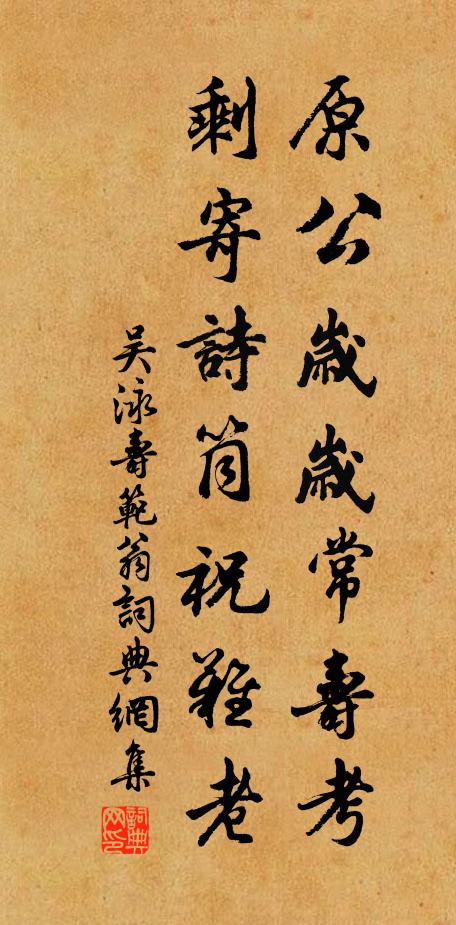 原公歲歲常壽考
剩寄詩筒祝難老
吴泳壽範翁詞典網集
詞典网印